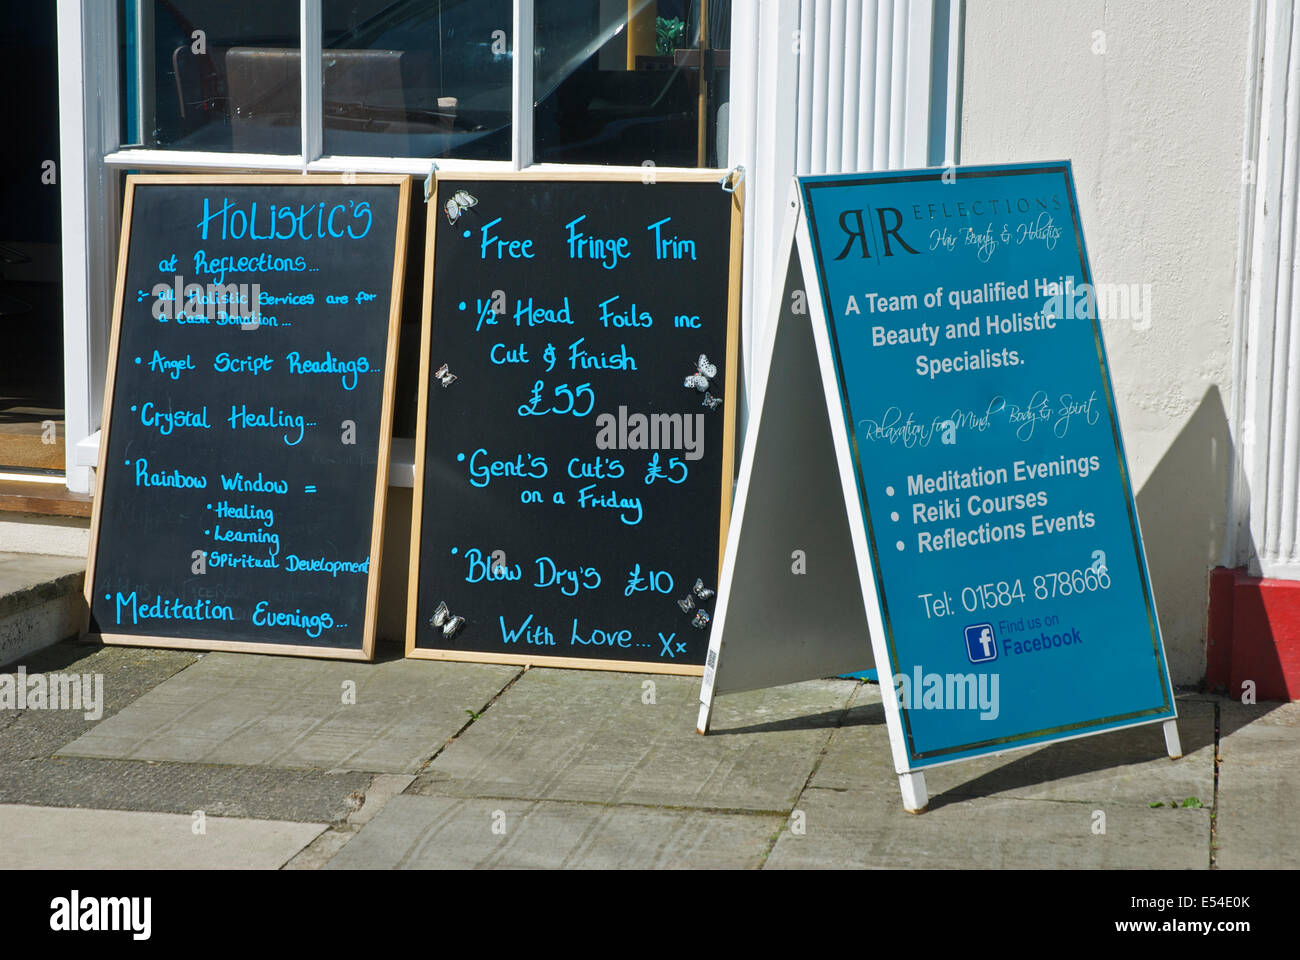 Holistic's
at Reflections...
:- all Holistic Services are for
a Cash Donation...
• Angel Script Readings...
• Crystal Healing...
• Rainbow Window =
• Healing
• Learning
• Spiritual Development
• Meditation Evenings...
• Free Fringe Trim
• ½ Head Foils inc
Cut & Finish
£55
• Gent's Cut's £5
on a Friday
• Blow Dry's £10
With Love... Xx
R|REFLECTIONS
Hair Beauty & Holistics
A Team of qualified Hair,
Beauty and Holistic
Specialists.
Relaxation for Mind, Body & Spirit
• Meditation Evenings
• Reiki Courses
• Reflections Events
Tel: 01584 878666
f Find us on
Facebook
alamy
www.alamy.com
Image ID: E54E0K